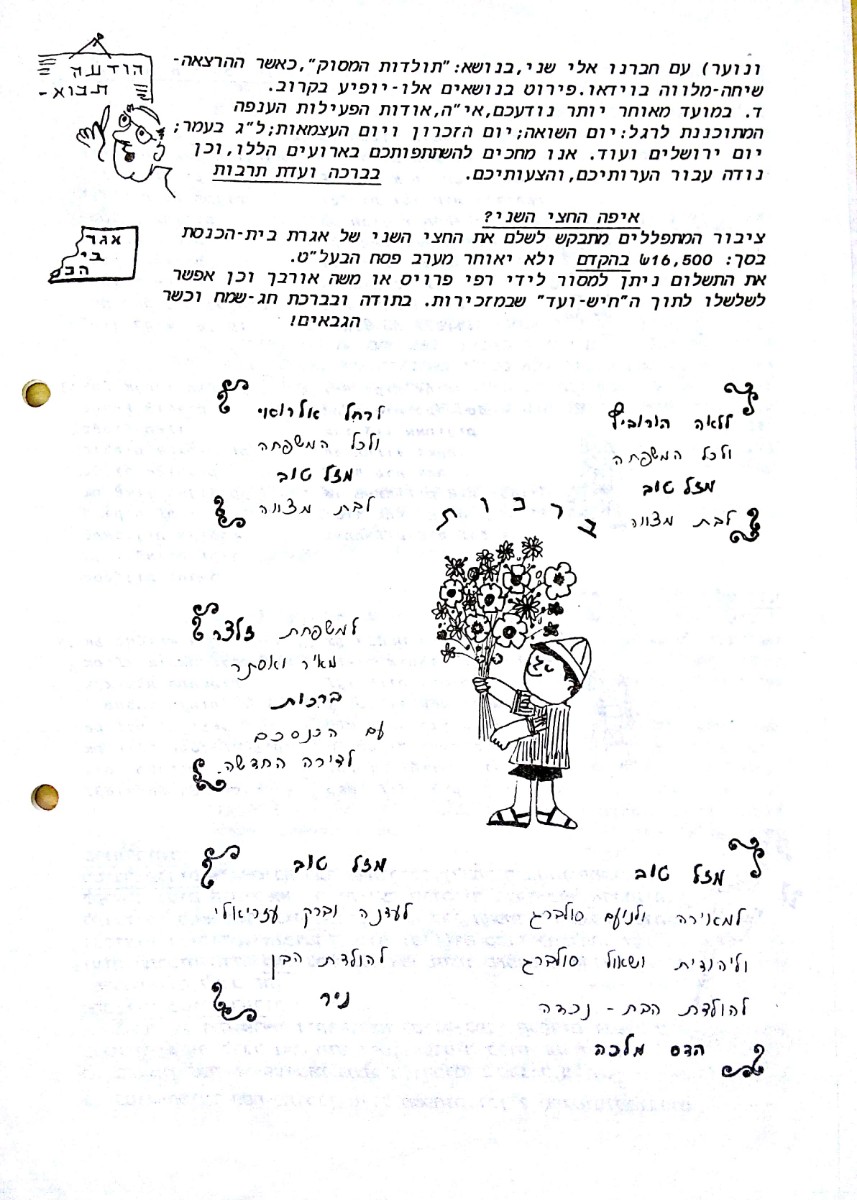 הודעה
תבוא-
ונוער) עם חברנו אלי שני,בנושא:"תולדות המסוק",כאשר ההרצאה-
שיחה-מלווה בוידאו.פירוט בנושאים אלו-יופיע בקרוב.
ד. במועד מאוחר יותר נודעכם,אי"ה,אודות הפעילות הענפה
המתוכננת לרגל:יום השואה;יום הזכרון ויום העצמאות;ל"ג בעמר;
יום ירושלים ועוד. אנו מחכים להשתתפותכם בארועים הללו,וכן
נודה עבור הערותיכם,והצעותיכם. בברכה ועדת תרבות
איפה החצי השני?
אגר
בי
הכ
ציבור המתפללים מתבקש לשלם את החצי השני של אגרת בית-הכנסת
בסך: 16,500₪ בהקדם ולא יאוחר מערב פסח הבעל"ט.
את התשלום ניתן למסור לידי רפי פרויס או משה אורבך וכן אפשר
לשלשלו לתוך ה"חיש-ועד" שבמזכירות. בתודה ובברכת חג-שמח וכשר
הגבאים!
ברכות
ללאה הורוביץ
ולכל המשפחה
מזל טוב
לבת מצווה
לרחל אלרואי
ולכל המשפחה
מזל טוב
לבת מצווה
למשפחת זלצר
מאיר ואסתר
ברכות
עם הכנסכם
לדירה החדשה.
מזל טוב
למאירה ולנועם סולברג
וליהודית ושאול סולברג
להולדת הבת - נכדה
הדס מלכה
מזל טוב
לעדנה וברק עזריאלי
להולדת הבן
ניר